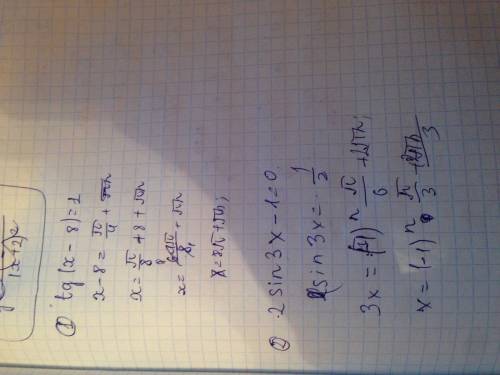 (x+2)²
① tg(x - 8) = 1
x - 8 = π/4 + πn
x = π/8 + 8 + πn
x = + πn
x = 8π + πn;
② 2 sin 3x - 1 = 0
sin 3x = 1/2
3x = (-1)ⁿ π/6 + 2πn;
x = (-1)ⁿ π/3 + 2πn/3